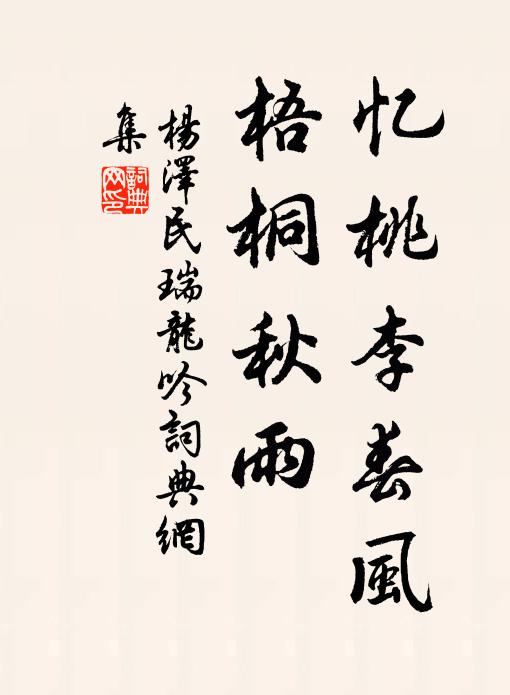 忆桃李春風
梧桐秋雨
楊澤民瑞龍吟詞典網
集
詞典
网印